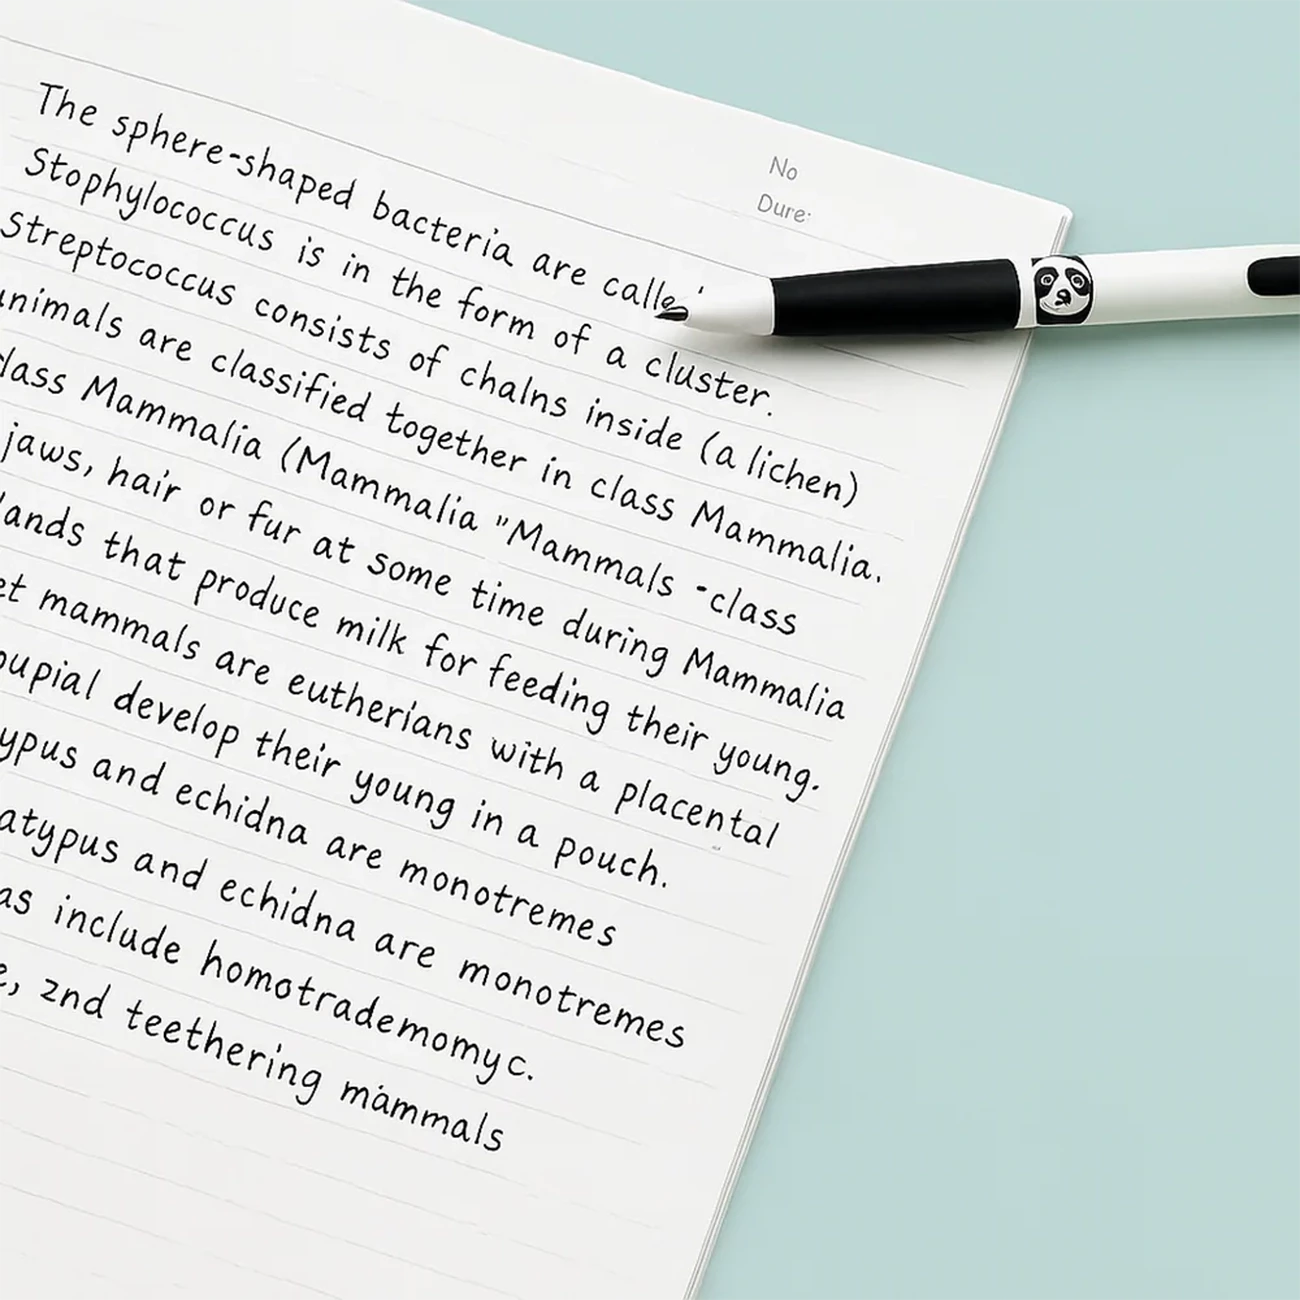 No
Dure:
The sphere-shaped bacteria are calle
Stophylococcus is in the form of a cluster.
Streptococcus consists of chalns inside (a lichen)
animals are classified together in class Mammalia.
class Mammalia (Mammalia "Mammals -class
jaws, hair or fur at some time during Mammalia
lands that produce milk for feeding their young.
et mammals are eutherians with a placental
oupial develop their young in a pouch.
ypus and echidna are monotremes
atypus and echidna are monotremes
as include homotrademomyc.
e, 2nd teethering mammals